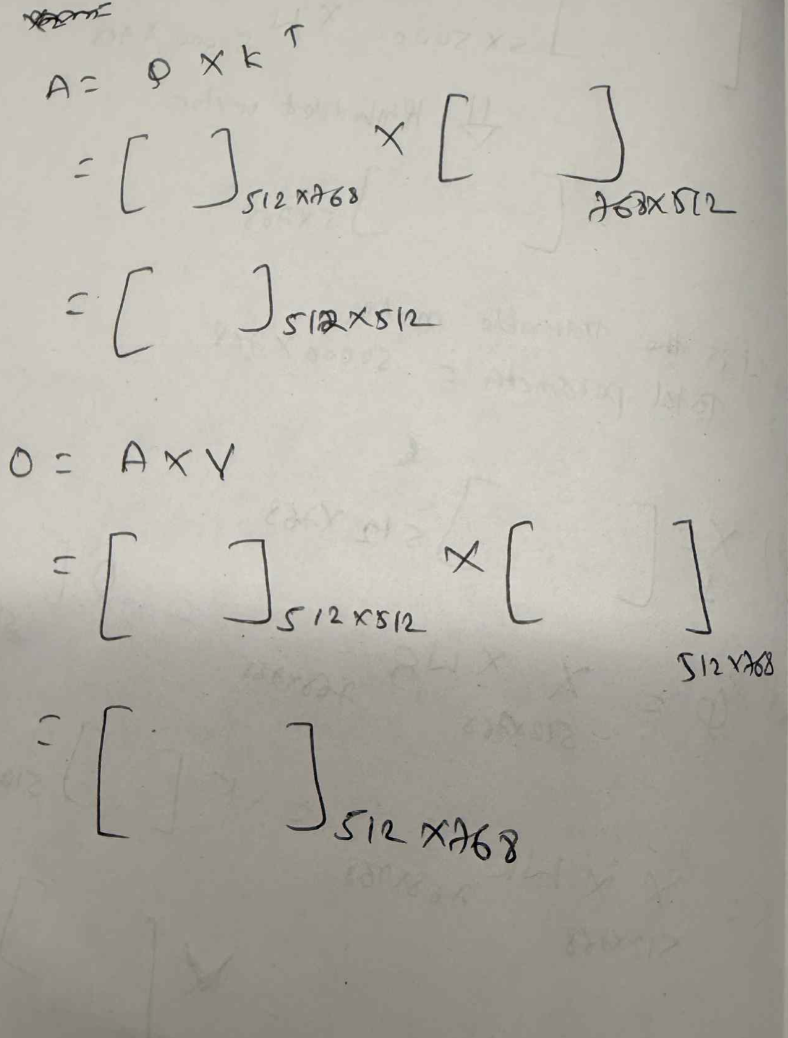 A = Q × K^T
= [ ]512×768 × [ ]768×512
= [ ]512×512
O = A × V
= [ ]512×512 × [ ]512×768
= [ ]512×768